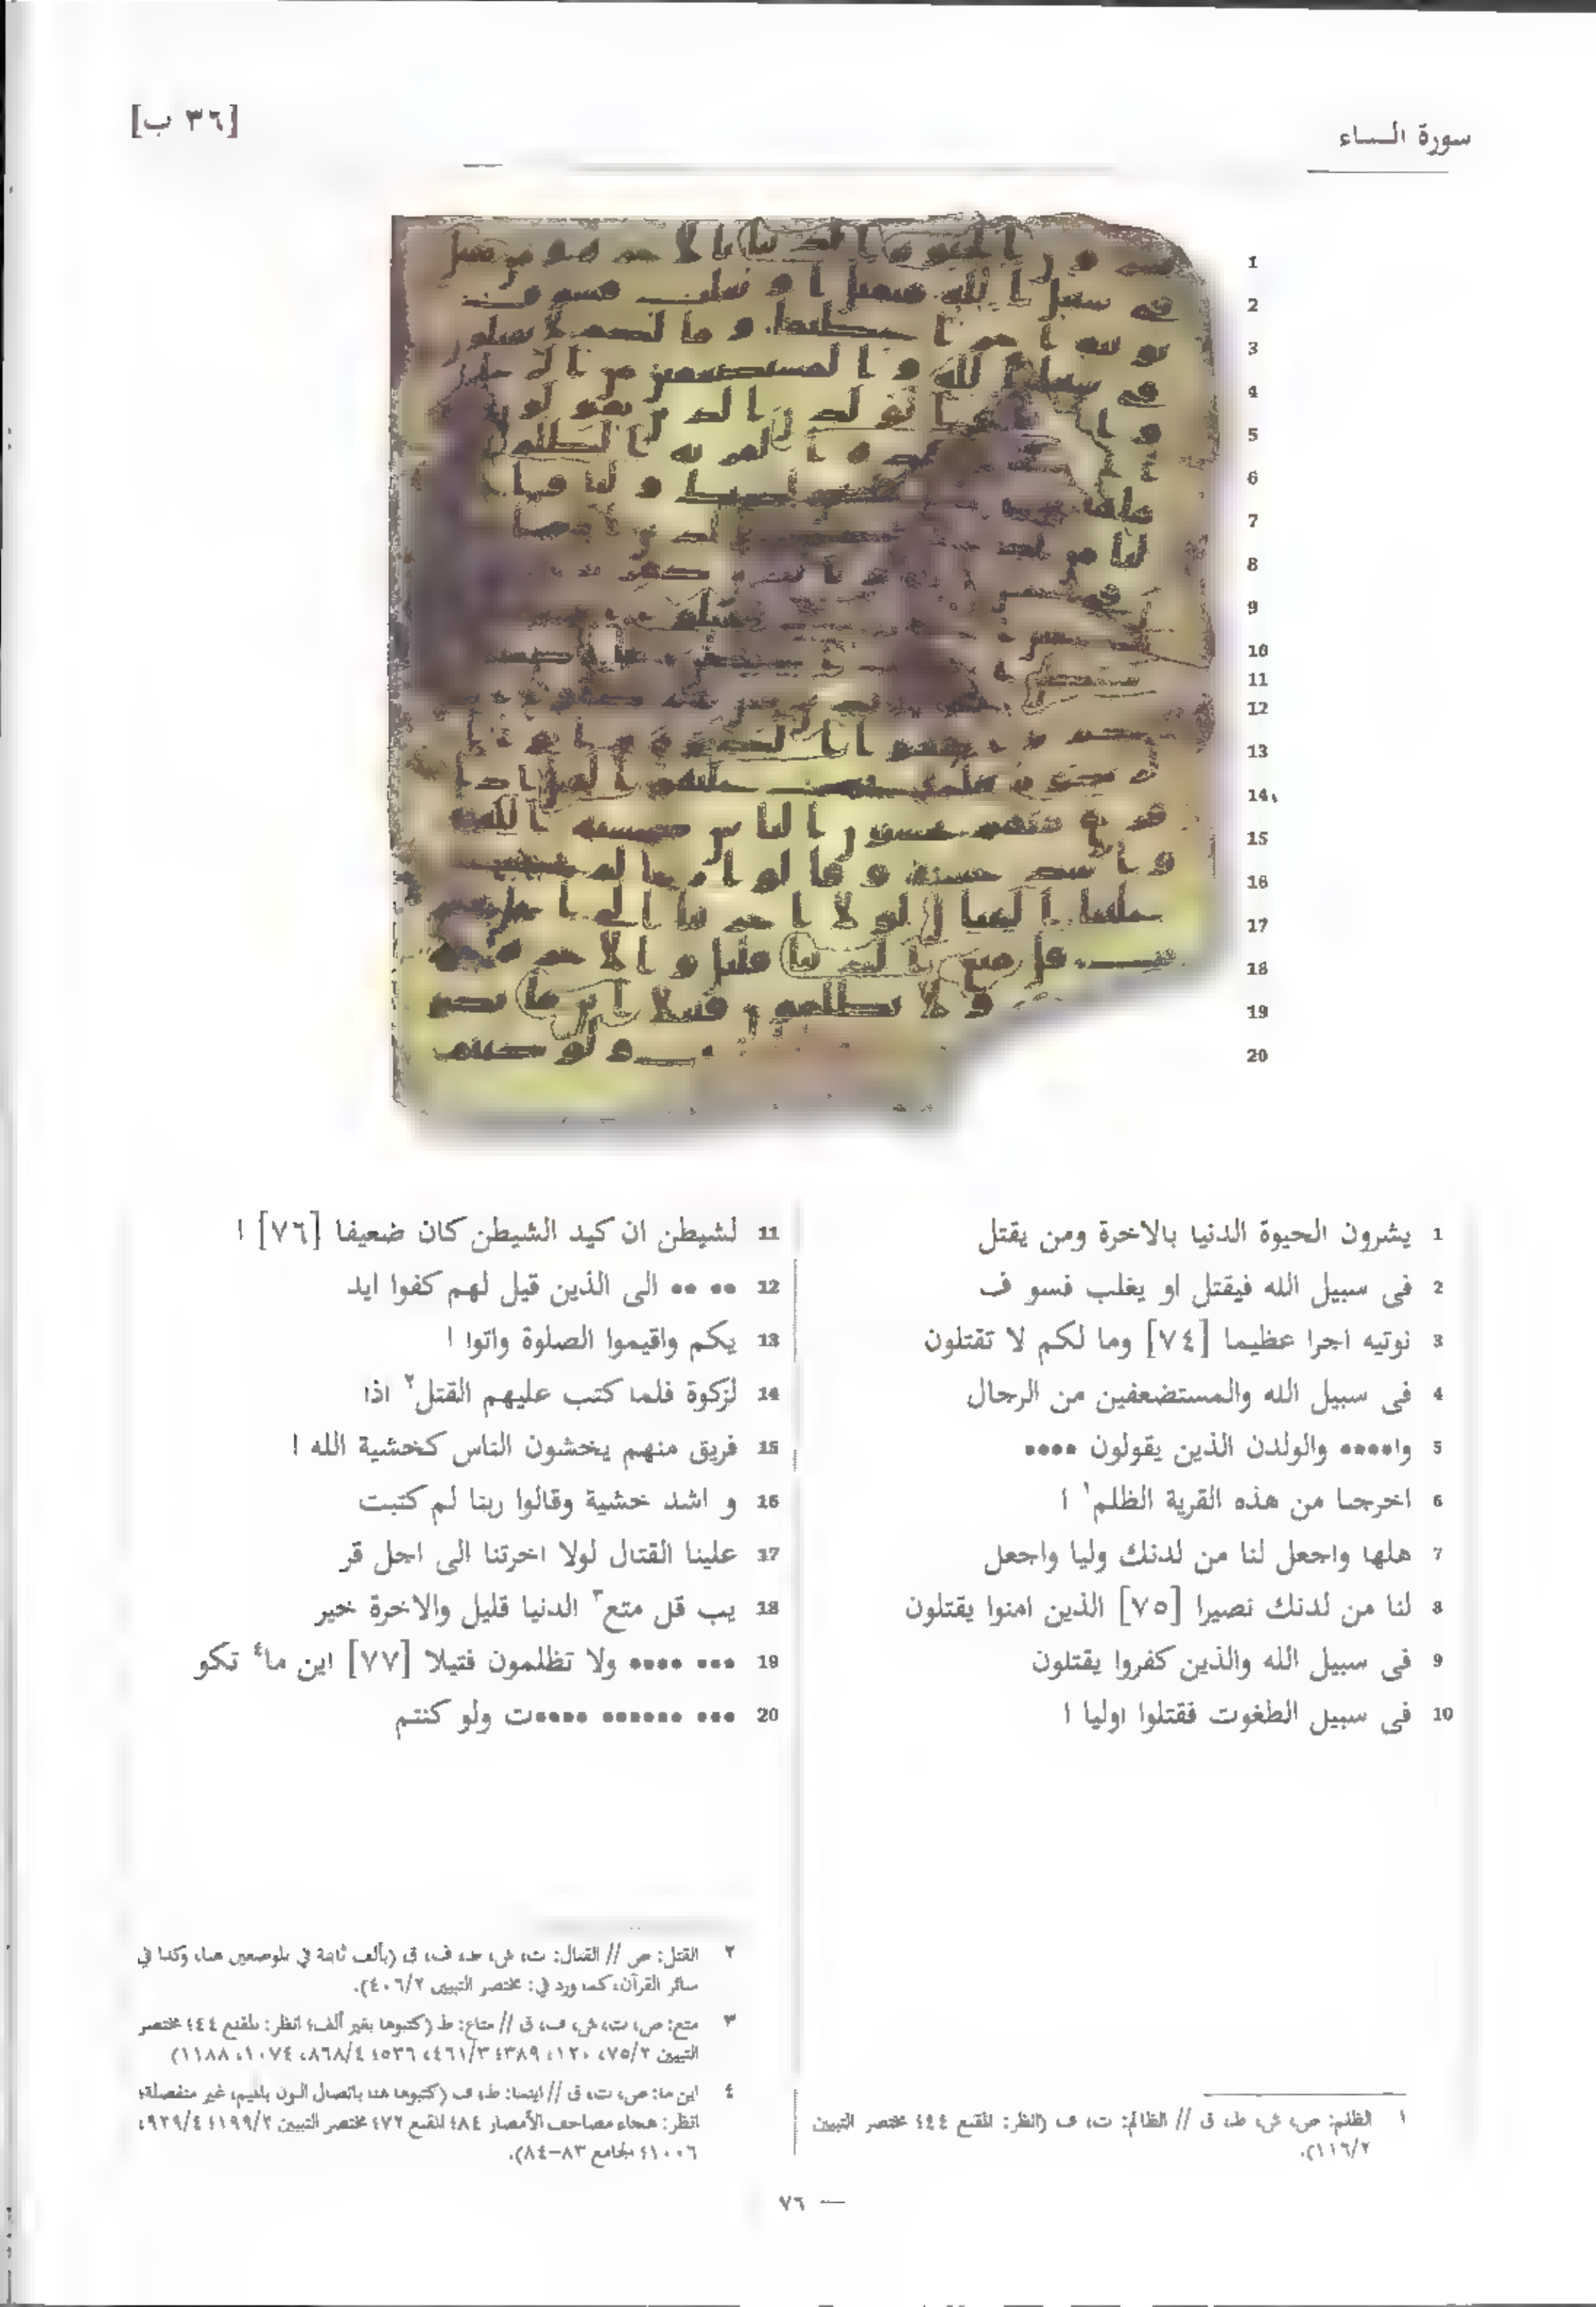 سورة النساء
[٣٦ ب]
1 يشرون الحيوة الدنيا بالاخرة ومن يقتل
2 فى سبيل الله فيقتل او يغلب فسو ف
3 نوتيه اجرا عظيما [٧٤] وما لكم لا تقتلون
4 فى سبيل الله والمستضعفين من الرجال
5 وا••••• والولدن الذين يقولون ••••
6 اخرجنا من هذه القرية الظلم١ ا
7 هلها واجعل لنا من لدنك وليا واجعل
8 لنا من لدنك نصيرا [٧٥] الذين امنوا يقتلون
9 فى سبيل الله والذين كفروا يقتلون
10 فى سبيل الطغوت فقتلوا اوليا ا
11 لشيطن ان كيد الشيطن كان ضعيفا [٧٦] ا
12 •• •• الى الذين قيل لهم كفوا ايد
13 يكم واقيموا الصلوة واتوا ا
14 لزكوة فلما كتب عليهم القتل٢ اذا
15 فريق منهم يخشون الناس كخشية الله ا
16 و اشد خشية وقالوا ربنا لم كتبت
17 علينا القتال لولا اخرتنا الى اجل قر
18 يب قل متع٣ الدنيا قليل والاخرة خير
19 ••• •••• ولا تظلمون فتيلا [٧٧] اين ما٤ تكو
20 ••• •••••• ••••ت ولو كنتم
١ الظلم: ص، ش، ط، ق // الظالم: ت، ف (انظر: المقنع ٤٤؛ مختصر التبيين
١١٦/٢).
٢ القتل: ص // القتال: ت، ش، ط، ف، ق (بألف ثابتة في الموضعين هنا، وكذا في
سائر القرآن، كما ورد في: مختصر التبيين ٤٠٦/٢).
٣ متع: ص، ت، ش، ف، ق // متاع: ط (كتبوها بغير ألف؛ انظر: المقنع ٤٤؛ مختصر
التبيين ٧٥/٢، ١٢٠، ٣٨٩؛ ٤٦١/٣، ٥٣٦؛ ٨٦٨/٤، ١٠٧٤، ١١٨٨)
٤ اين ما: ص، ت، ق // اينما: ط، ف (كتبوها هنا باتصال النون بالميم، غير منفصلة؛
انظر: هجاء مصاحف الأمصار ٨٤؛ المقنع ٧٢؛ مختصر التبيين ١٩٩/٢؛ ٩٢٩/٤،
١٠٠٦؛ الجامع ٨٣–٨٤).
— ٧٦